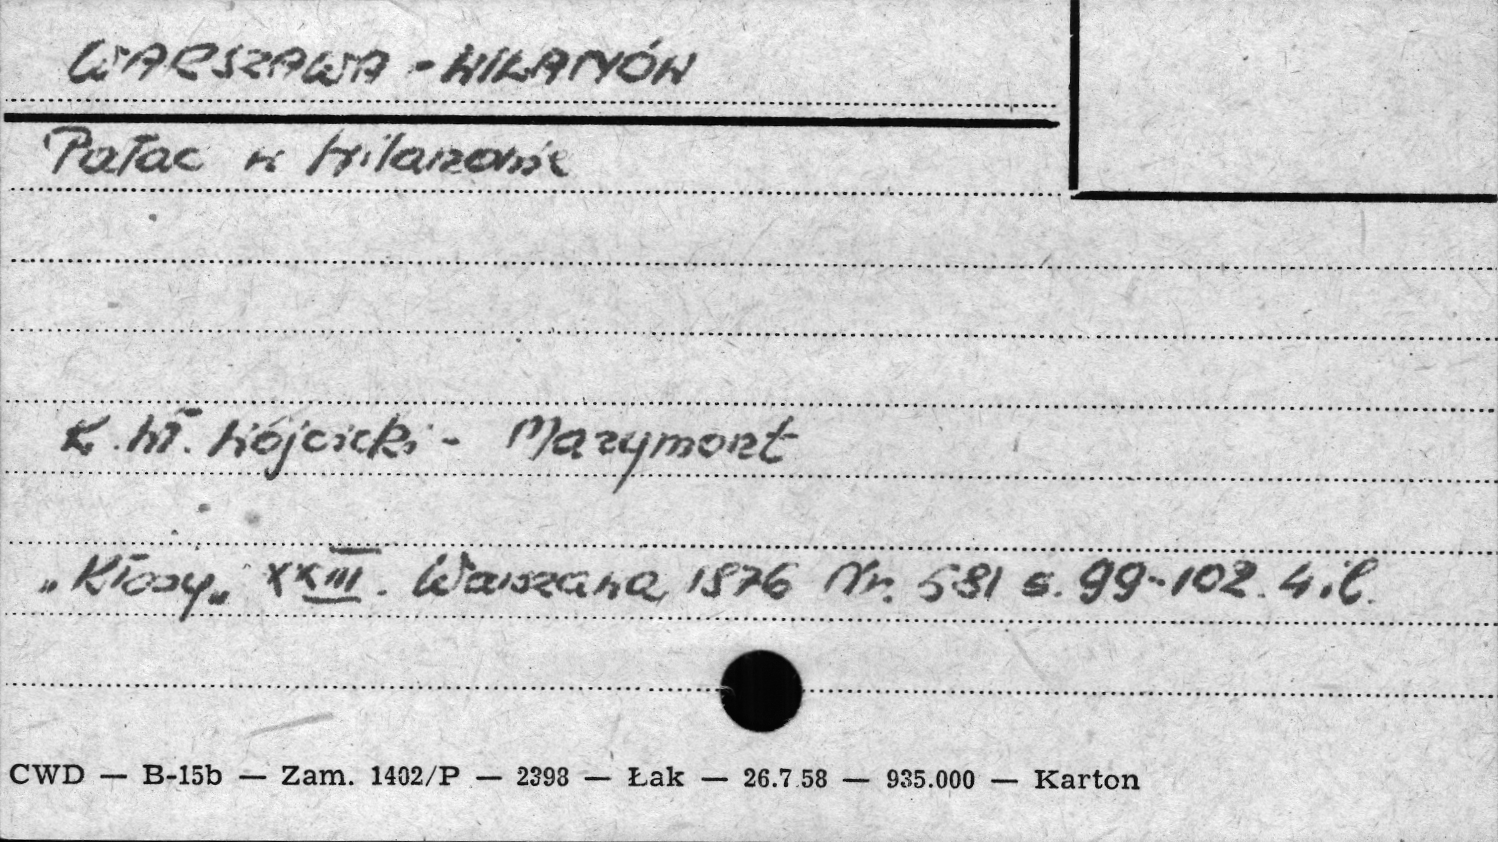 WARSZAWA - WILANÓW
Pałac w Wilanowie
K. Wł. Wójcicki - Marymont
„Kłosy„ XXIII. Warszawa 1876 Nr. 581 s. 99-102. 4 il.
CWD — B-15b — Zam. 1402/P — 2398 — Łak — 26.7.58 — 935.000 — Karton